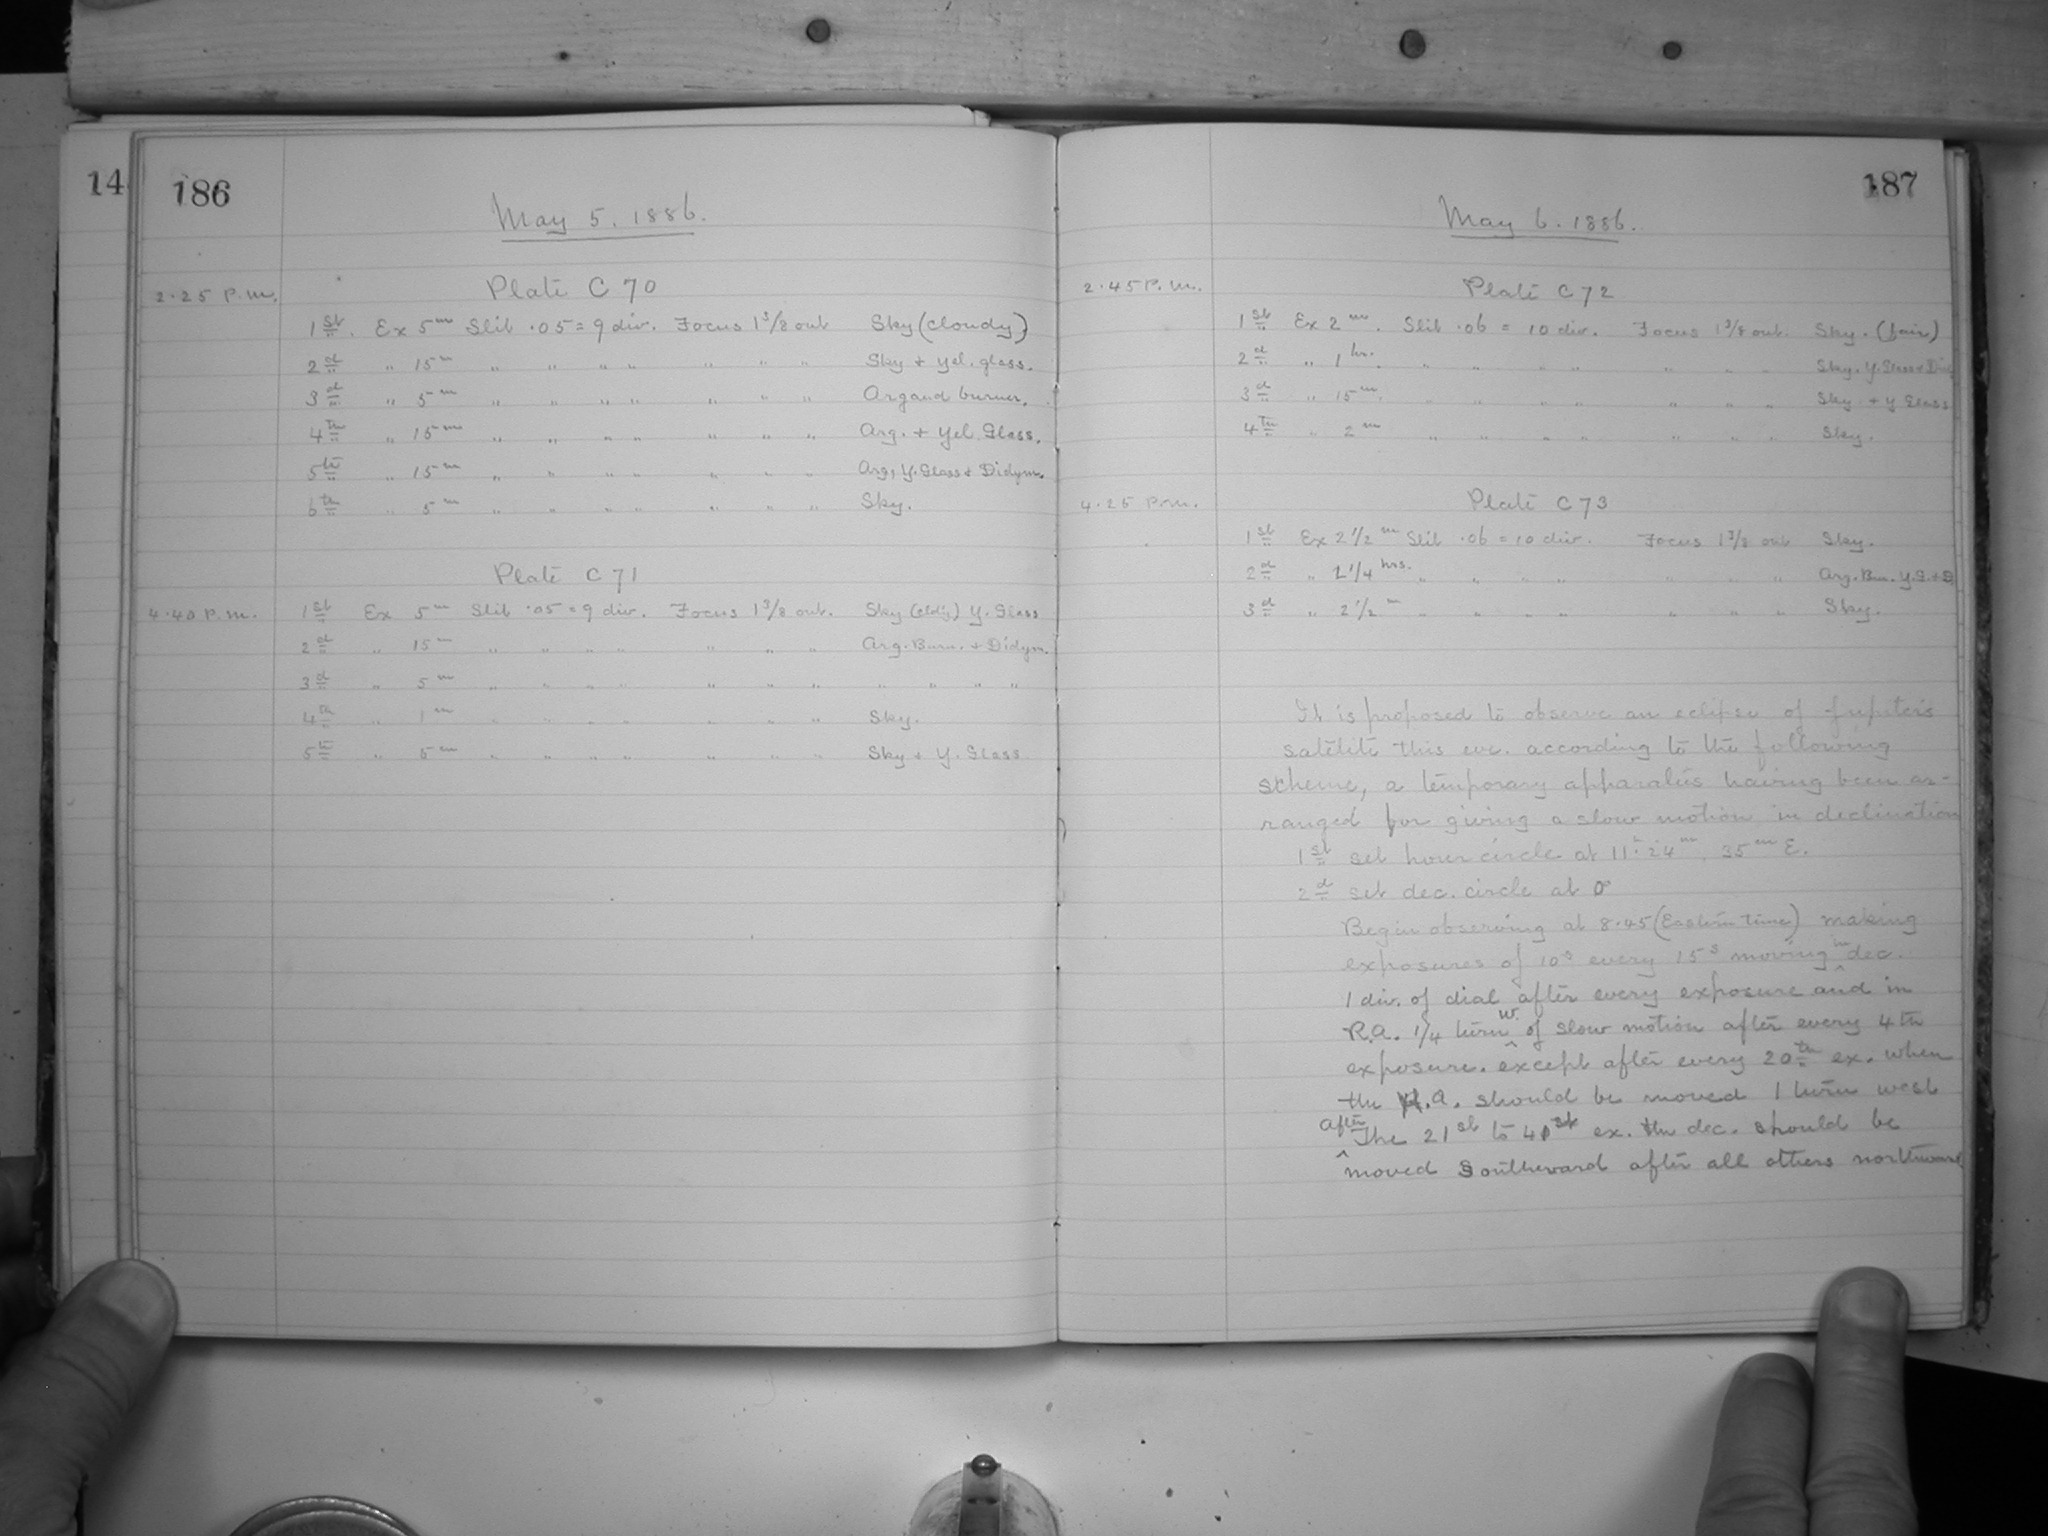 14
186
May 5. 1886.
2.25 P.M.
Plate C 70
1st. Ex 5m Slit .05 = 9 div. Focus 1 3/8 out Sky (cloudy)
2d " 15m " " " " " " " Sky + Yel. glass.
3d " 5m " " " " " " " Argand burner.
4th " 15m " " " " " " " Arg. + Yel. Glass.
5th " 15m " " " " " " " Arg, Y. Glass + Didym.
6th " 5m " " " " " " " Sky.
Plate C 71
4.40 P.M. 1st Ex 5m Slit .05 = 9 div. Focus 1 3/8 out. Sky (cld'y) Y. Glass
2d " 15m " " " " " " " Arg. Burn. + Didym.
3d " 5m " " " " " " " " " " "
4th " 1m " " " " " " " Sky.
5th " 5m " " " " " " " Sky + Y. Glass
187
May 6. 1886.
2.45 P.M.
Plate C 72
1st Ex 2m. Slit .06 = 10 div. Focus 1 3/8 out. Sky. (fair)
2d " 1hr. " " " " " " " Sky. Y. Glass + Did
3d " 15m. " " " " " " " Sky + Y Glass
4th " 2m " " " " " " " Sky.
4.25 P.M.
Plate C 73
1st Ex 2 1/2m Slit .06 = 10 div. Focus 1 3/8 out Sky.
2d " 1/4 hrs. " " " " " " " Arg. Bur. Y. G. + D
3d " 2 1/2m " " " " " " " Sky.
It is proposed to observe an eclipse of Jupiter's
satelite this eve. according to the following
scheme, a temporary apparatus having been ar-
ranged for giving a slow motion in declination
1st set hour circle at 11h 24m, 35m E.
2d set dec. circle at 0°
Begin observing at 8.45 (Eastern time) making
exposures of 10s every 15s moving in dec.
1 div. of dial after every exposure and in
R.A. 1/4 turn W. of slow motion after every 4th
exposure. except after every 20th ex. when
the R.A. should be moved 1 turn west
After The 21st to 40st ex. the dec. should be
moved Southward after all others northward